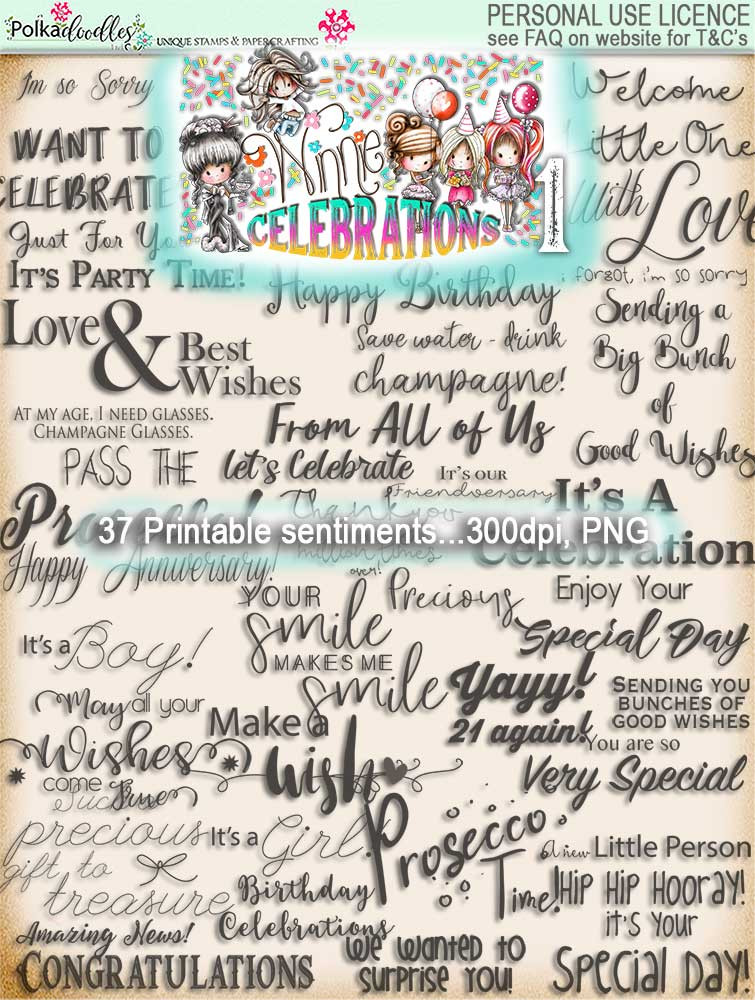 Polkadoodles Ltd
UNIQUE STAMPS & PAPERCRAFTING
PERSONAL USE LICENCE
see FAQ on website for T&C's
I'm so Sorry
WANT TO
CELEBRATE
Just For You
IT'S PARTY TIME!
Winnie
CELEBRATIONS
1
Welcome
Little One
With
Love
i forgot, i'm so sorry
Happy Birthday
Love & Best
Wishes
Save water - drink
champagne!
Sending a
Big Bunch
of
Good Wishes
AT MY AGE, I NEED GLASSES.
CHAMPAGNE GLASSES.
From All of Us
PASS THE
Prosecco!
Let's Celebrate
IT'S OUR
Friendversary
Thank you
million times
over!
It's A
Celebration
37 Printable sentiments...300dpi, PNG
Happy Anniversary!
YOUR
smile
MAKES ME
smile
Precious
Enjoy Your
Special Day
It's a Boy!
Yayy!
21 again!
SENDING YOU
BUNCHES OF
GOOD WISHES
May all your
Wishes
come true
Make a
wish
You are so
Very Special
Such
precious
gift to
treasure
It's a Girl!
Prosecco
Time!
a new Little Person
Birthday
Celebrations
HIP HIP HOORAY!
IT'S YOUR
Special Day!
Amazing News!
CONGRATULATIONS
We wanted to
surprise you!